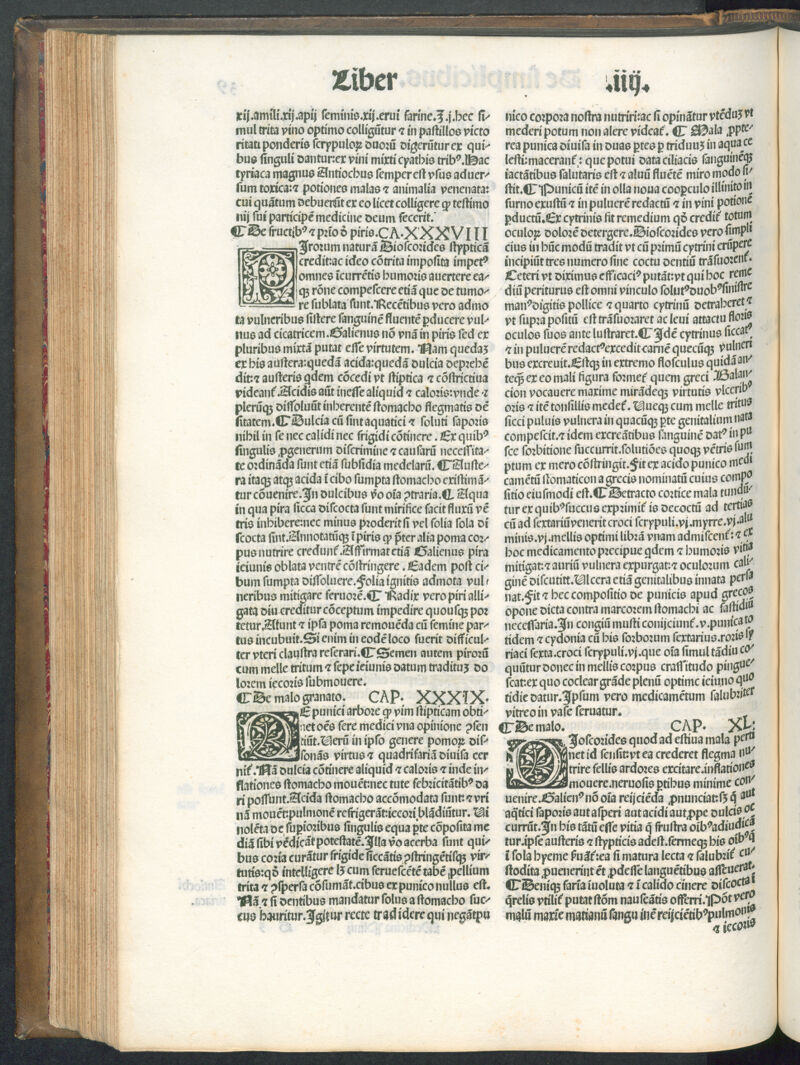 Liber .iiij.
xij.amili.xij.apij seminis.xij.erui farine.ʒ.j.hec si-
mul trita vino optimo colligūtur ⁊ in pastillos victo
ritati ponderis scrypuloꝝ duorū digerūtur ex qui-
bus singuli dantur:ex vini mixti cyathis tribꝰ. Hac
tyriaca magnus Antiochus semper est vsus aduer-
sum toxica:⁊ potiones malas ⁊ animalia venenata:
cui quātum debuerūt ex eo licet colligere ꝙ testimo
nij sui participē medicine deum fecerit.
¶ De fructibꝰ ⁊ prio ō piris. CA.XXXVIII
Pirorum naturā Dioscorides stypticā
credit:ac ideo cōtrita imposita impetꝰ
omnes īcurrētis humoris auertere ea-
qꝫ rōne compescere etiā que de tumo-
re sublata sunt. Recētibus vero admo
ta vulneribus sistere sanguinē fluentē ꝓducere vul-
nus ad cicatricem. Galienus nō vnā in piris sed ex
pluribus mixtā putat esse virtutem. Nam quedaꝫ
ex his austera:quedā acida:quedā dulcia deprehē
dit:⁊ austeris qdem cōcedi vt stiptica ⁊ cōstrictiua
videanť. Acidis aūt inesse aliquid ⁊ caloris:vnde ⁊
plerūqꝫ dissoluūt inherentē stomacho flegmatis dē
sitatem.¶ Dulcia cū sint aquatici ⁊ soluti saporis
nihil in se nec calidi nec frigidi cōtinere . Ex quibꝰ
singulis ꝓgenerum discrimine ⁊ causarū necessita-
te ordināda sunt etiā subsidia medelarū. ¶ Auste-
ra itaqꝫ atqꝫ acida ī cibo sumpta stomacho existimā-
tur cōuenire. In dulcibus v̄o oīa ꝯtraria. ¶ Aqua
in qua pira sicca discocta sunt mirifice facit fluxū vē
tris inhibere:nec minus ꝓderit si vel folia sola di
scocta sint. Annotatūqꝫ ī piris ꝙ p̄ter alia poma cor-
pus nutrire credunť. Affirmat etiā Galienus pira
ieiunis oblata ventrē cōstringere . Eadem post ci-
bum sumpta dissoluere. Folia ignitis admota vul-
neribus mitigare feruorē.¶ Radix vero piri alli-
gata diu creditur cōceptum impedire quousqꝫ por
tetur. Aiunt ⁊ ipsa poma remouēda cū semine par-
tus incubuit. Si enim in eodē loco fuerit difficul-
ter vteri claustra reserari.¶ Semen autem pirorū
cum melle tritum ⁊ sepe ieiunis datum traditurꝫ do
lorem iecoris submouere.
¶ De malo granato. CAP. XXXIX.
DE punici arbore ꝙ vim stipticam obti-
net oēs fere medici vna opinione ꝯsen
tiūt. Verū in ipso genere pomoꝝ dis-
sonās virtus ⁊ quadrifariā diuisa cer
niť. Nā dulcia cōtinere aliquid ⁊ caloris ⁊ inde in-
flationes stomacho mouēt:nec tute febricitātibꝰ da
ri possunt. Acida stomacho accōmodata sunt:⁊ vri
nā mouēt:pulmonē refrigerāt:iecori blādiūtur. Vi
nolēta de suꝑioribus singulis equa ꝑte cōposita me
diā sibi vēdicāt potestatē. Illa v̄o acerba sunt qui-
bus coria curātur frigide siccātis ꝯstringētisqꝫ vir-
tutis:qō intelligere lꝫ cum feruescētē tabē pellium
trita ⁊ ꝯspersa cōsumāt.cibus ex punico nullus est.
Nā ⁊ si dentibus mandatur solus a stomacho suc-
cus hauritur. Igitur recte tradidere qui negāt pu
nico corpora nostra nutriri:ac si opinātur vtēdūꝫ vt
mederi potum non alere videať. ¶ Mala ꝓpte-
rea punica diuisa in duas ꝑtes ꝑ triduuꝫ in aqua ce
lesti:maceranť : que potui data ciliacis sanguinēqꝫ
iactātibus salutaris est ⁊ aluū fluētē miro modo si-
stit.¶ Punicū itē in olla noua cooꝑculo illinito in
furno exustū ⁊ in puluerē redactū ⁊ in vini potionē
ꝓductū. Ex cytrinis fit remedium qō crediť totum
oculoꝝ dolorē detergere. Dioscorides vero simpli
cius in hūc modū tradit vt cū primū cytrini erūpere
incipiūt tres numero sine coctu dentiū trāsuorenť.
Ceteri vt diximus efficaciꝰ putāt:vt qui hoc reme
diū periturus est omni vinculo solutꝰ duobꝰ sinistre
manꝰ digitis pollice ⁊ quarto cytrinū detraheret ⁊
vt supra positū est trāsuoraret ac leui attactu floris
oculos suos ante lustraret.¶ Idē cytrinus siccatꝰ
⁊ in puluerē redactꝰ excedit carnē quecūqꝫ vulneri
bus excreuit. Estqꝫ in extremo flosculus quidā an-
teqꝫ ex eo mali figura formeť quem greci Balau-
cion vocauere maxime mirādeqꝫ virtutis vlceribꝰ
oris ⁊ itē tonsillis medeť. Vueqꝫ cum melle tritus
sicci puluis vulnera in quacūqꝫ ꝑte genitalium nata
compescit.⁊ idem excreātibus sanguinē datꝰ in pu
sce sorbitione succurrit.solutiōes quoqꝫ vētris sum
ptum ex mero cōstringit. Fit ex acido punico medi
camētū stomaticon a grecis nominatū cuius compo
sitio eiusmodi est.¶ Detracto cortice mala tundū-
tur ex quibꝰ succus exprimiť is decoctū ad tertias
cū ad sextariū venerit croci scrypuli.vj.myrre.vj.alu
minis.vj.mellis optimi librā vnam admiscenť:⁊ ex
hoc medicamento precipue qdem ⁊ humoris vitia
mitigat:⁊ auriū vulnera expurgat:⁊ oculorum cali-
ginē discutitt. Ulcera etiā genitalibus innata persa
nat. Fit ⁊ hec compositio de punicis apud grecos
opone dicta contra marcorem stomachi ac fastidiū
necessaria. In congiū musti conijciunť.v.punica to
tidem ⁊ cydonia cū his sorborum sextarius.roris sy
riaci sexta.croci scrypuli.vj.que oīa simul tādiu co-
quūtur donec in mellis corpus crassitudo pingue-
scat:ex quo coclear grāde plenū optime ieiuno quo
tidie datur. Ipsum vero medicamētum salubriter
vitreo in vase seruatur.
¶ De malo. CAP. XL:
DIoscorides quod ad estiua mala perti
net id sensit:vt ea crederet flegma nu-
trire fellis ardores excitare.inflationes
mouere.neruosis ꝑtibus minime con-
uenire. Galienꝰ nō oīa reijciēda ꝓnunciat:sꝫ ꝗ̄ aut
aq̄tici saporis aut asperi aut acidi aut ꝓpe dulcis oc
currūt. In his tātū esse vitia ꝙ frustra oibꝰ adiudicā
tur.ipse austeris ⁊ stypticis adest.sermeqꝫ his oibꝰ ꝗ
ī sola hyeme ẜuāť:ea si matura lecta ⁊ salubriť cu-
stodita ꝓuenerint ēt ꝓdesse languētibus asseuerat.
¶ Deniqꝫ farīa iuoluta ⁊ ī calido cinere discocta ī
q̄relis vtiliť putat stōm nauseātis offerri. Pōt vero
malū maxīe matianū sanguinē reijciētibꝰ pulmonis
⁊ iecoris